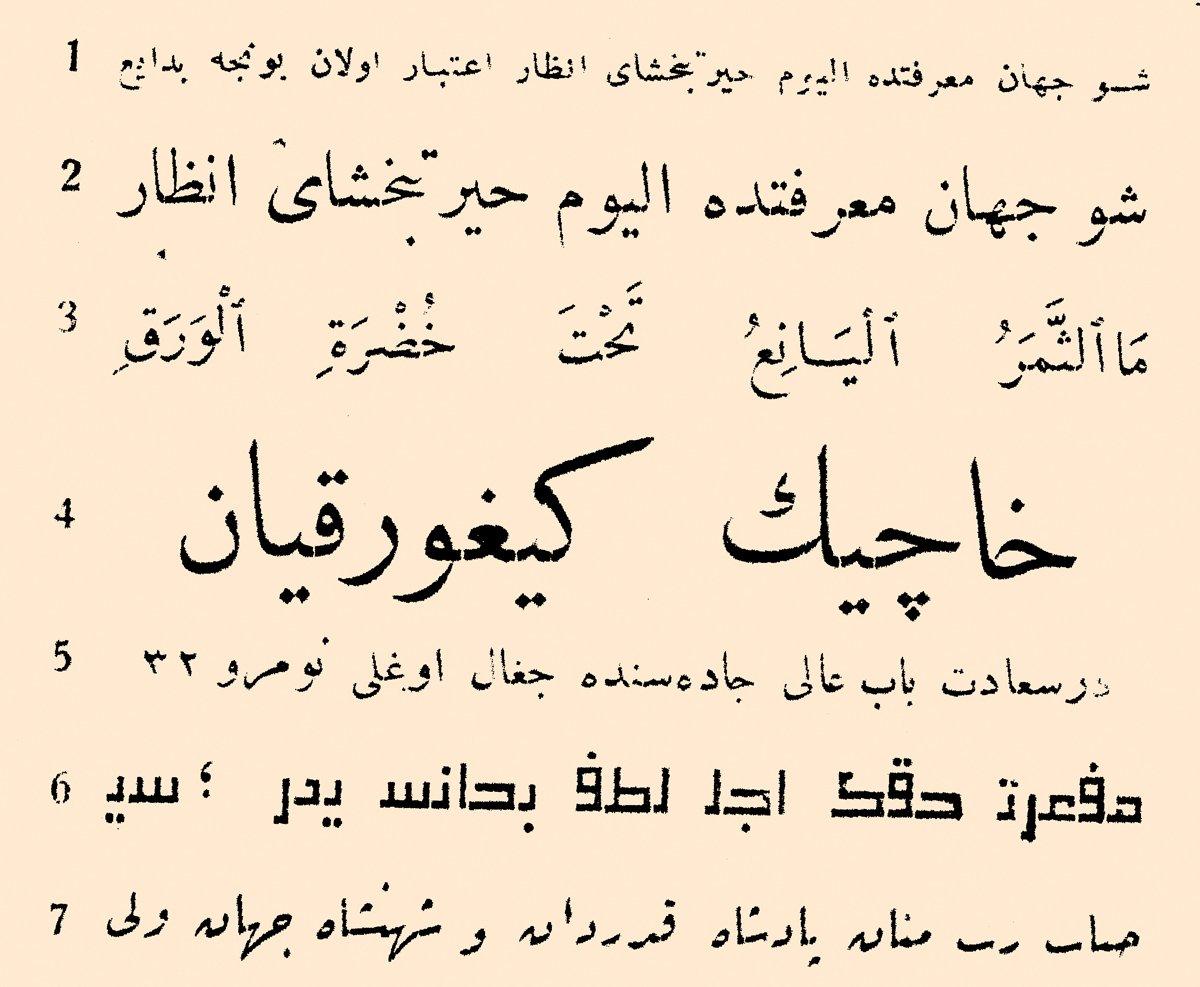 1 شو جهان معرفتده اليوم حيرتبخشاى انظار اعتبار اولان بونجه بدايع
2 شو جهان معرفتده اليوم حيرتبخشاى انظار
3 مَاٱلثَّمَرُ ٱلْيَـانِعُ تَحْتَ خُضْرَةِ ٱلْوَرَقِ
4 خاچيك كيغورقيان
5 درسعادت باب عالى جاده‌سنده جغال اوغلى نومرو ٣٢
6 اجل لطف يدر ؛
7 رب منان پادشاه قدردان و شهنشاه جهان ولى